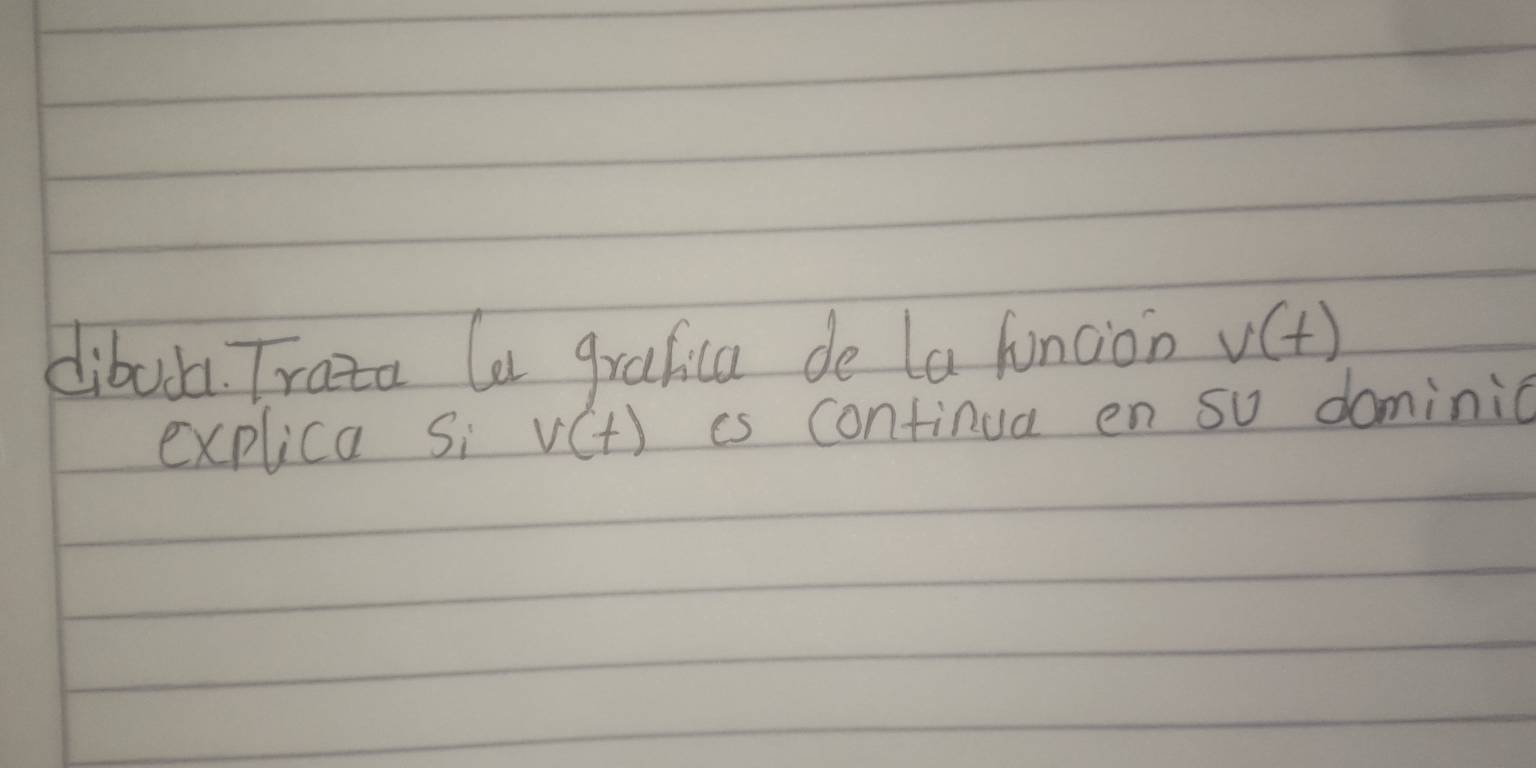 dibuja. Traza la grafica de la función v(t)
explica si v(t) es continua en su dominio